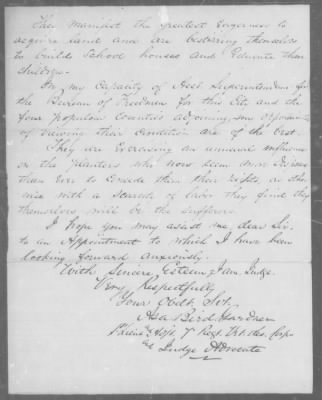 They manifest the greatest eagerness to
acquire land and are bestirring themselves
to build School houses and Educate their
children.
In my Capacity of Asst Superintendent for
the Bureau of Freedmen for this City and the
four populous Counties adjoining, my opportunities
of viewing their condition are of the best.
They are Exercising an unusual influence
on the Planters who now seem more
than Ever to Concede them their rights, as other
wise with a Scarcity of labor they find they
themselves will be the Sufferers.
I hope you may assist me, dear Sir,
to an Appointment to which I have been
looking forward anxiously.
With Sincere Esteem, I am, Judge,
Very Respectfully
Your Obdt. Svt.
Asa Bird Gardner
1st Lieut & Adjt. 7 Regt. Vet. Res. Corps
Judge Advocate